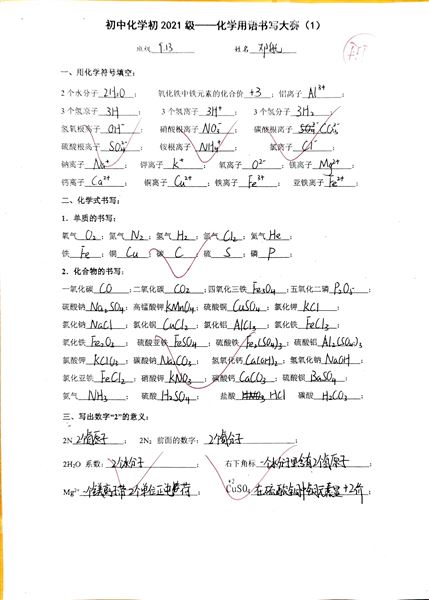 初中化学初2021级——化学用语书写大赛（1）
班级 9.13 姓名
一、用化学符号填空：
2个水分子 2H₂O ； 氧化铁中铁元素的化合价 +3 ；铝离子 Al³⁺ ；
3个氢原子 3H ； 3个氢离子 3H⁺ ； 3个氢分子 3H₂ ；
氢氧根离子 OH⁻ ； 硝酸根离子 NO₃⁻ ； 碳酸根离子 CO₃²⁻ ；
硫酸根离子 SO₄²⁻ ； 铵根离子 NH₄⁺ ； 氯离子 Cl⁻ ；
钠离子 Na⁺ ； 钾离子 K⁺ ； 氧离子 O²⁻ ；镁离子 Mg²⁺ ；
钙离子 Ca²⁺ ； 铜离子 Cu²⁺ ； 铁离子 Fe³⁺ ； 亚铁离子 Fe²⁺ ；
二、化学式书写：
1．单质的书写：
氧气 O₂ ；氮气 N₂ ；氢气 H₂ ；氯气 Cl₂ ；氦气 He ；
铁 Fe ；铜 Cu ；碳 C ；硫 S ；磷 P ；
2．化合物的书写：
一氧化碳 CO ；二氧化碳 CO₂ ；四氧化三铁 Fe₃O₄ ；五氧化二磷 P₂O₅ ；
硫酸钠 Na₂SO₄ ；高锰酸钾 KMnO₄ ；硫酸铜 CuSO₄ ；氯化钾 KCl ；
氯化钠 NaCl ；氯化铜 CuCl₂ ；氯化铝 AlCl₃ ；氯化铁 FeCl₃ ；
氧化铁 Fe₂O₃ ； 硫酸亚铁 FeSO₄ ； 硫酸铁 Fe₂(SO₄)₃ ；硫酸铝 Al₂(SO₄)₃ ；
氯酸钾 KClO₃ ；碳酸钠 Na₂CO₃ ；氢氧化钙 Ca(OH)₂ ；氢氧化钠 NaOH ；
氯化亚铁 FeCl₂ ；硝酸钾 KNO₃ ；碳酸钙 CaCO₃ ；硫酸钡 BaSO₄ ；
氨气 NH₃ ； 硫酸 H₂SO₄ ； 盐酸 HCl ； 碳酸 H₂CO₃ ；
三、写出数字“2”的意义：
2N 2个氮原子 ； 2N₂ 前面的数字： 2个氮分子 ；
2H₂O 系数： 2个水分子 ； 右下角标 一个水分子里含有2个氢原子 ；
Mg²⁺ 一个镁离子带2个单位正电荷 ； +2 CuSO₄ 在硫酸铜中铜元素显+2价 ；